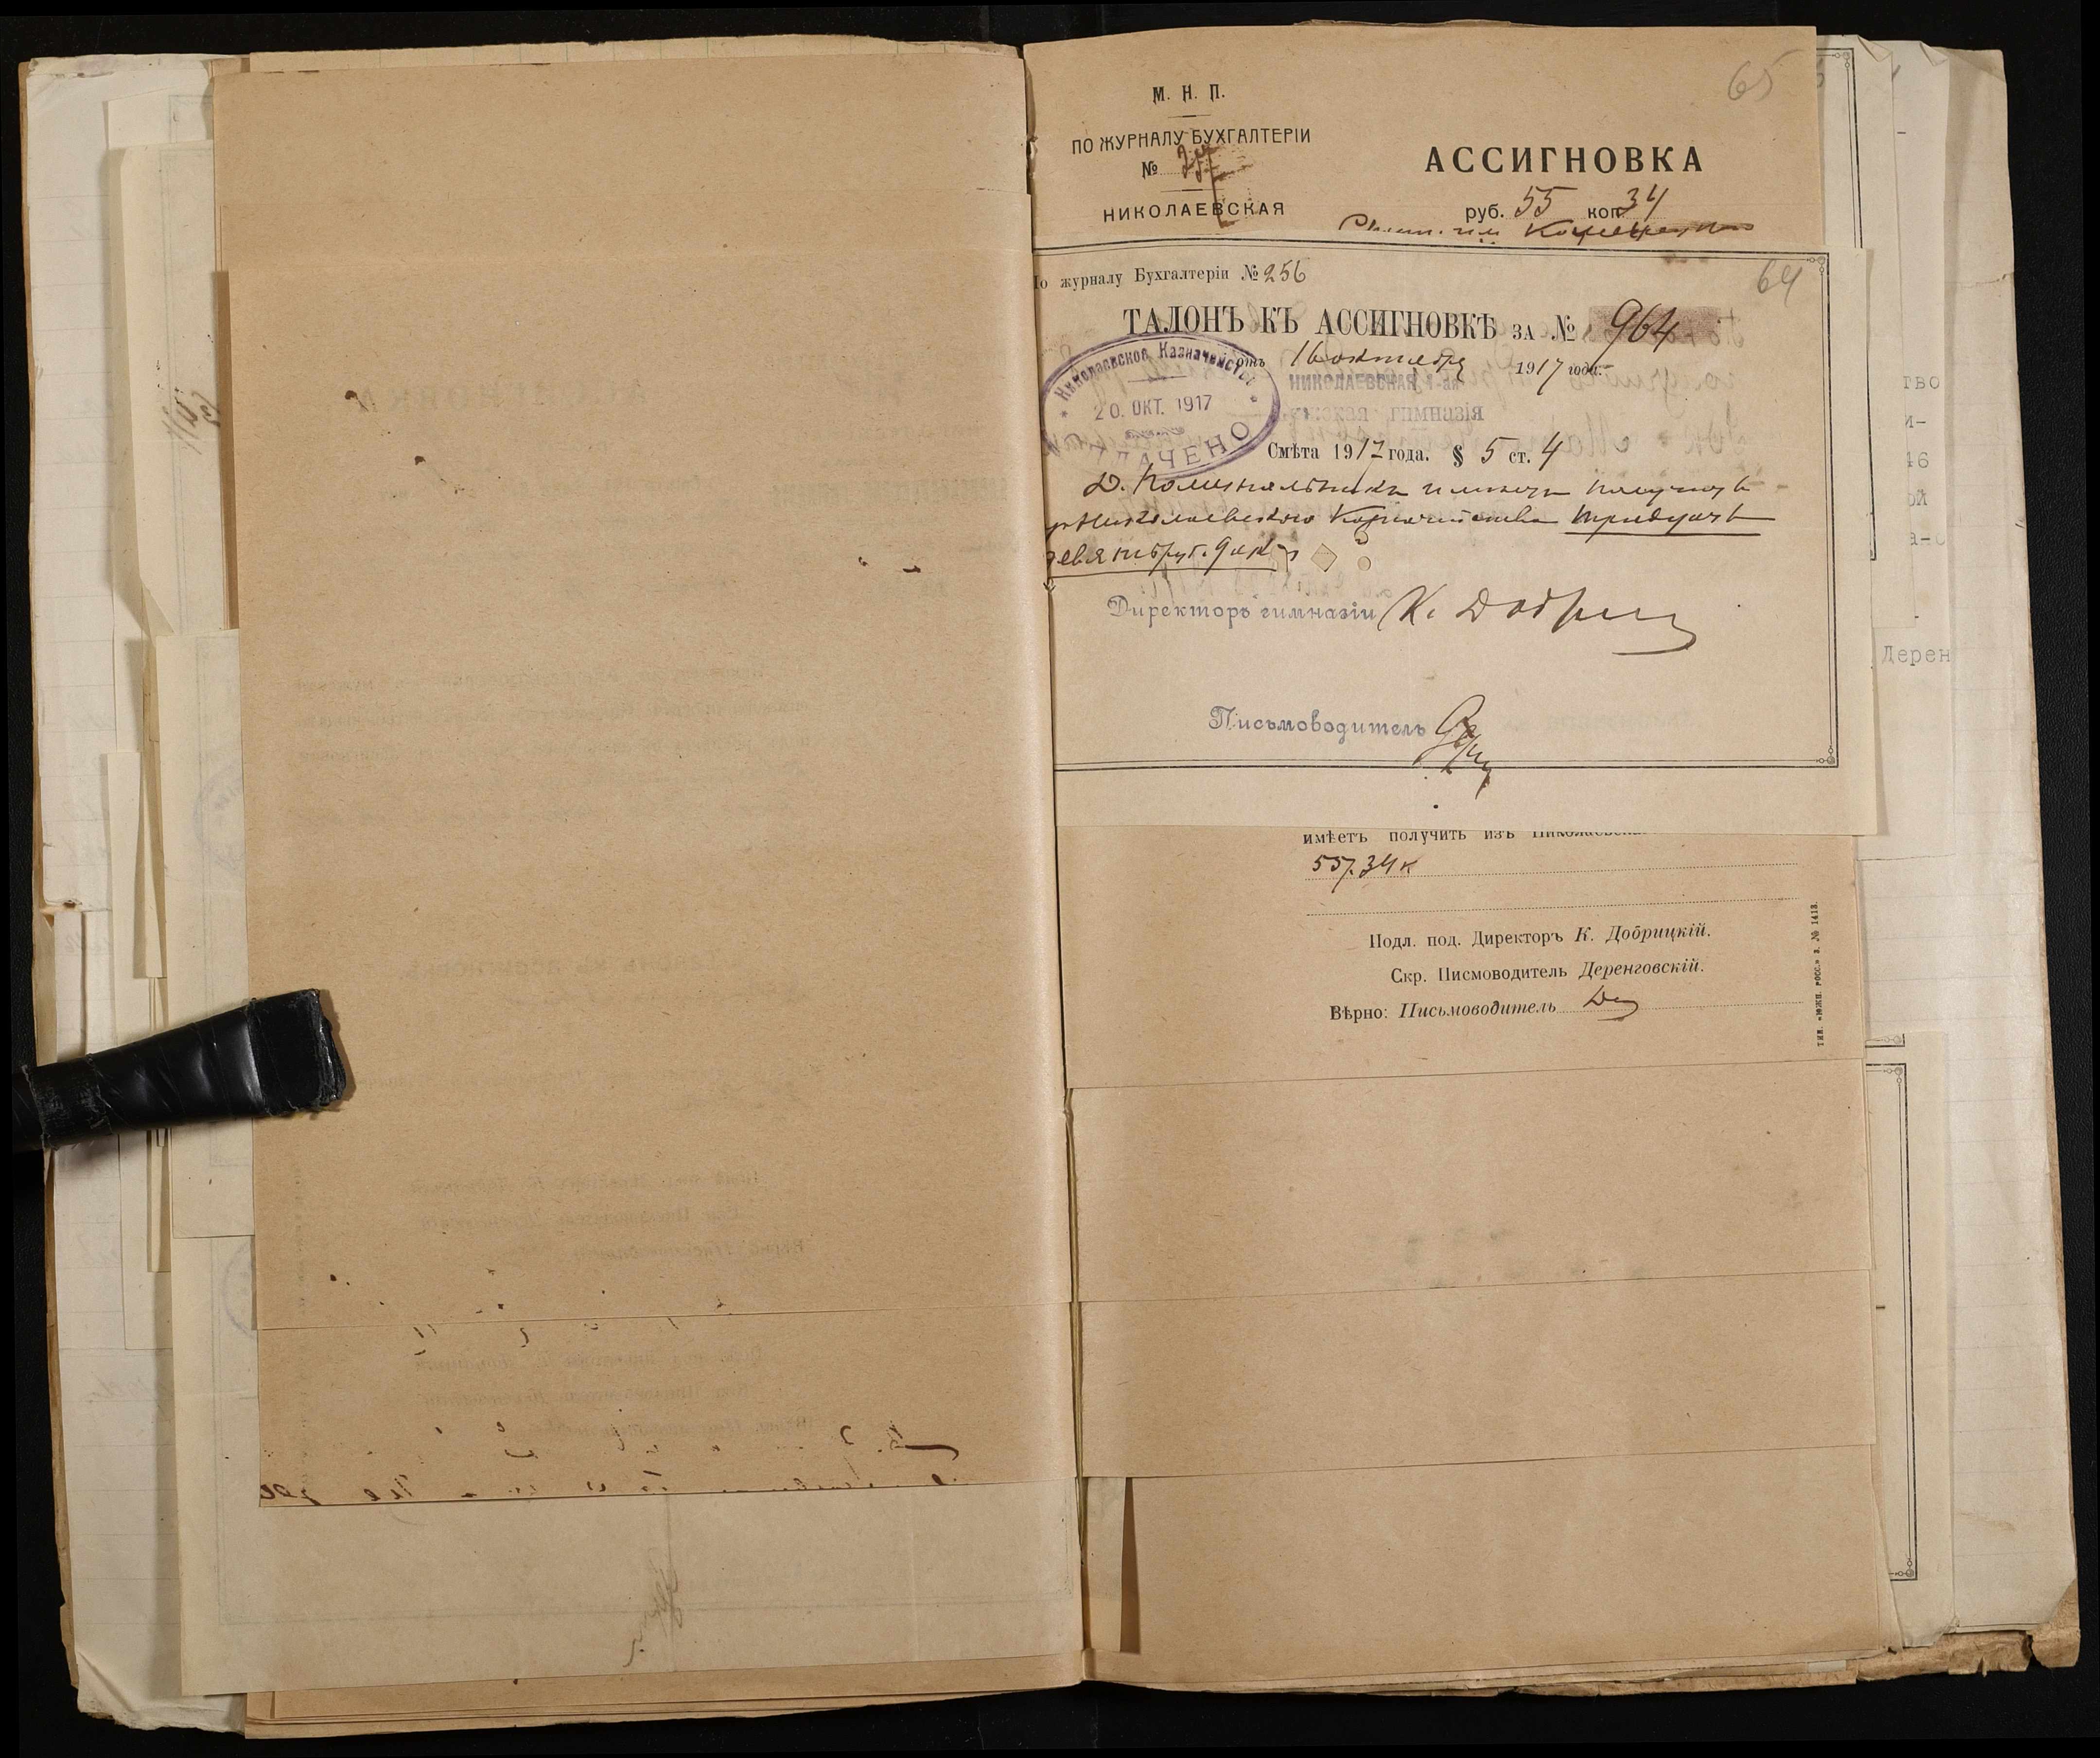 65
М. Н. П.
ПО ЖУРНАЛУ БУХГАЛТЕРІИ
№
НИКОЛАЕВСКАЯ
АССИГНОВКА
руб. 55 коп 34
По журналу Бухгалтеріи № 256
64
ТАЛОНЪ КЪ АССИГНОВКѢ ЗА № 964
отъ 16 октября 1917 года.
НИКОЛАЕВСКАЯ 1-ая
мужская гимназія
Николаевское Казначейство
20. ОКТ. 1917
ОПЛАЧЕНО
Смѣта 1917 года. § 5 ст. 4
имѣетъ получить
изъ Николаевского Казначейства тридцать
девять руб. 9 коп
Директоръ гимназіи К. Добриц
Письмоводитель
имѣетъ получить изъ Николаевска
55р. 34 к
Подл. под. Директоръ К. Добрицкій.
Скр. Писмоводитель Деренговскій.
Вѣрно: Письмоводитель
тип. «южн. росс.» з. № 1413.
тво
и-
46
ой
а-
Дерен